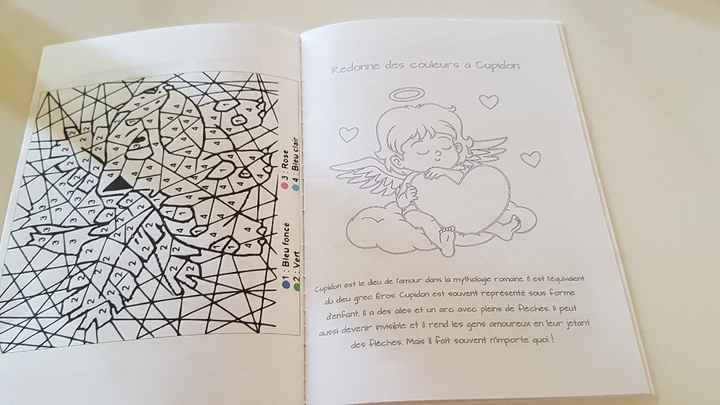 1 : Bleu foncé
2 : Vert
3 : Rose
4 : Bleu clair
Redonne des couleurs à Cupidon
Cupidon est le dieu de l'amour dans la mythologie romaine. Il est l'équivalent
du dieu grec Eros. Cupidon est souvent représenté sous forme
d'enfant. Il a des ailes et un arc avec pleins de flèches. Il peut
aussi devenir invisible et il rend les gens amoureux en leur jetant
des flèches. Mais il fait souvent n'importe quoi !